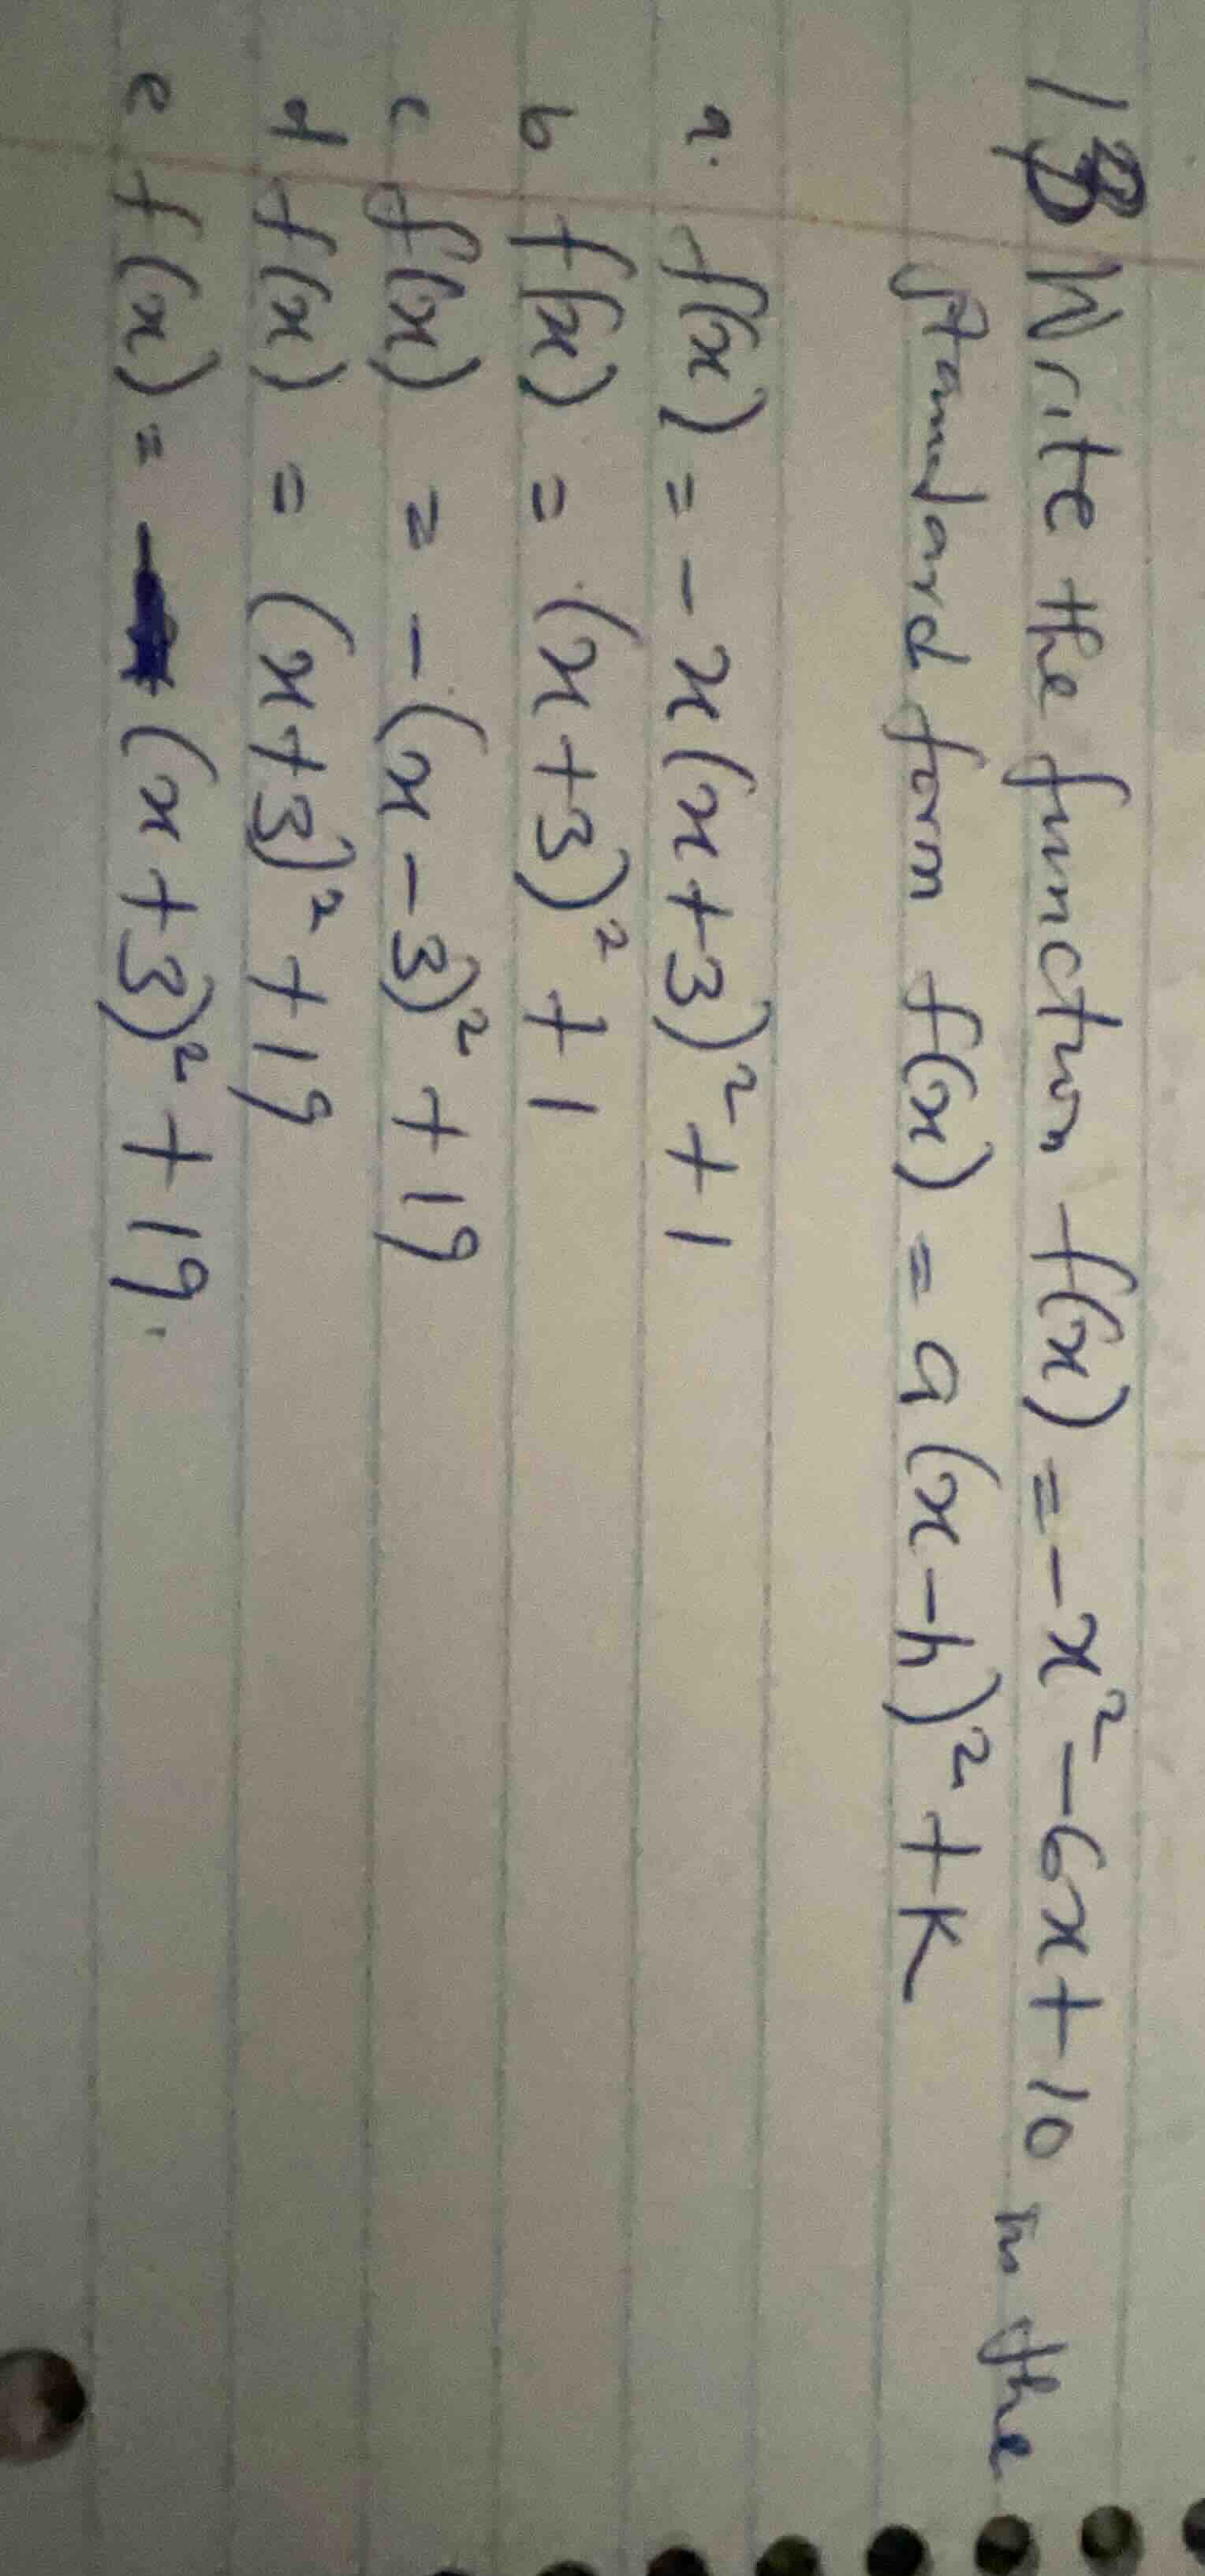 13 Write the function f(x) = -x² - 6x + 10 in the
standard form f(x) = a(x-h)² + k
a. f(x) = -x(x+3)² + 1
b f(x) = (x+3)² + 1
c f(x) = -(x-3)² + 19
d f(x) = (x+3)² + 19
e f(x) = - (x+3)² + 19.